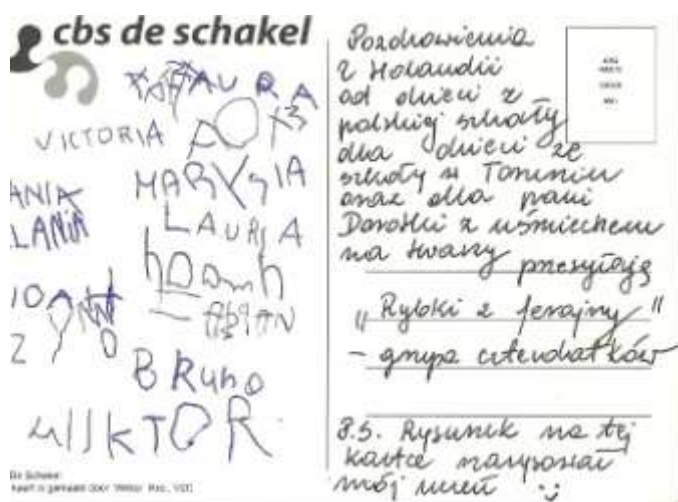 cbs de schakel
LAURA
VICTORIA
ANIA
MARYSIA
LANIA
LAURA
noamh
FABIAN
BRUNO
WIKTOR
De Schakel
Pozdrowienia
z Holandii
od dzieci z
polskiej szkoły
dla dzieci ze
szkoły w Toruniu
oraz dla pani
Dorotki z uśmiechem
na twarzy przesyłają
"Rybki z ferajny"
- grupa czterolatków
P.S. Rysunek na tej
kartce narysował
mój uczeń :)